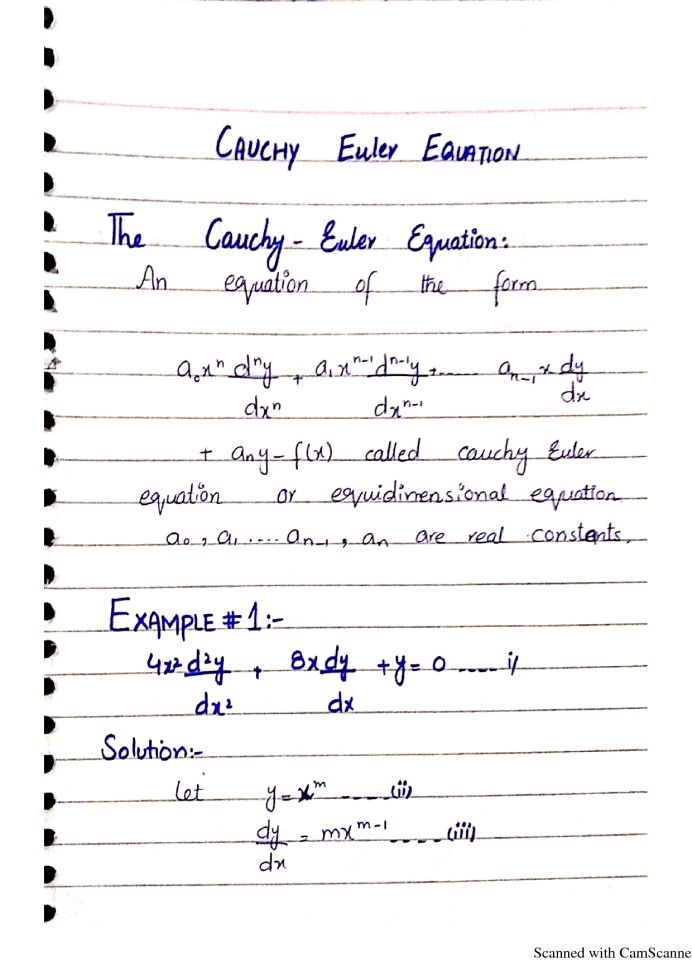 CAUCHY Euler EQUATION
The Cauchy - Euler Equation:
An equation of the form
a₀xⁿ dⁿy/dxⁿ + a₁xⁿ⁻¹dⁿ⁻¹y/dxⁿ⁻¹ +...... aₙ₋₁ x dy/dx
+ aₙy - f(x) called cauchy Euler
equation or equidimensional equation
a₀, a₁ .... aₙ₋₁, aₙ are real constants.
EXAMPLE # 1:-
4x² d²y/dx² + 8x dy/dx + y = 0 ..... i/
Solution:-
Let y = xᵐ ..... (ii)
dy/dx = mxᵐ⁻¹ .... (iii)
Scanned with CamScanne